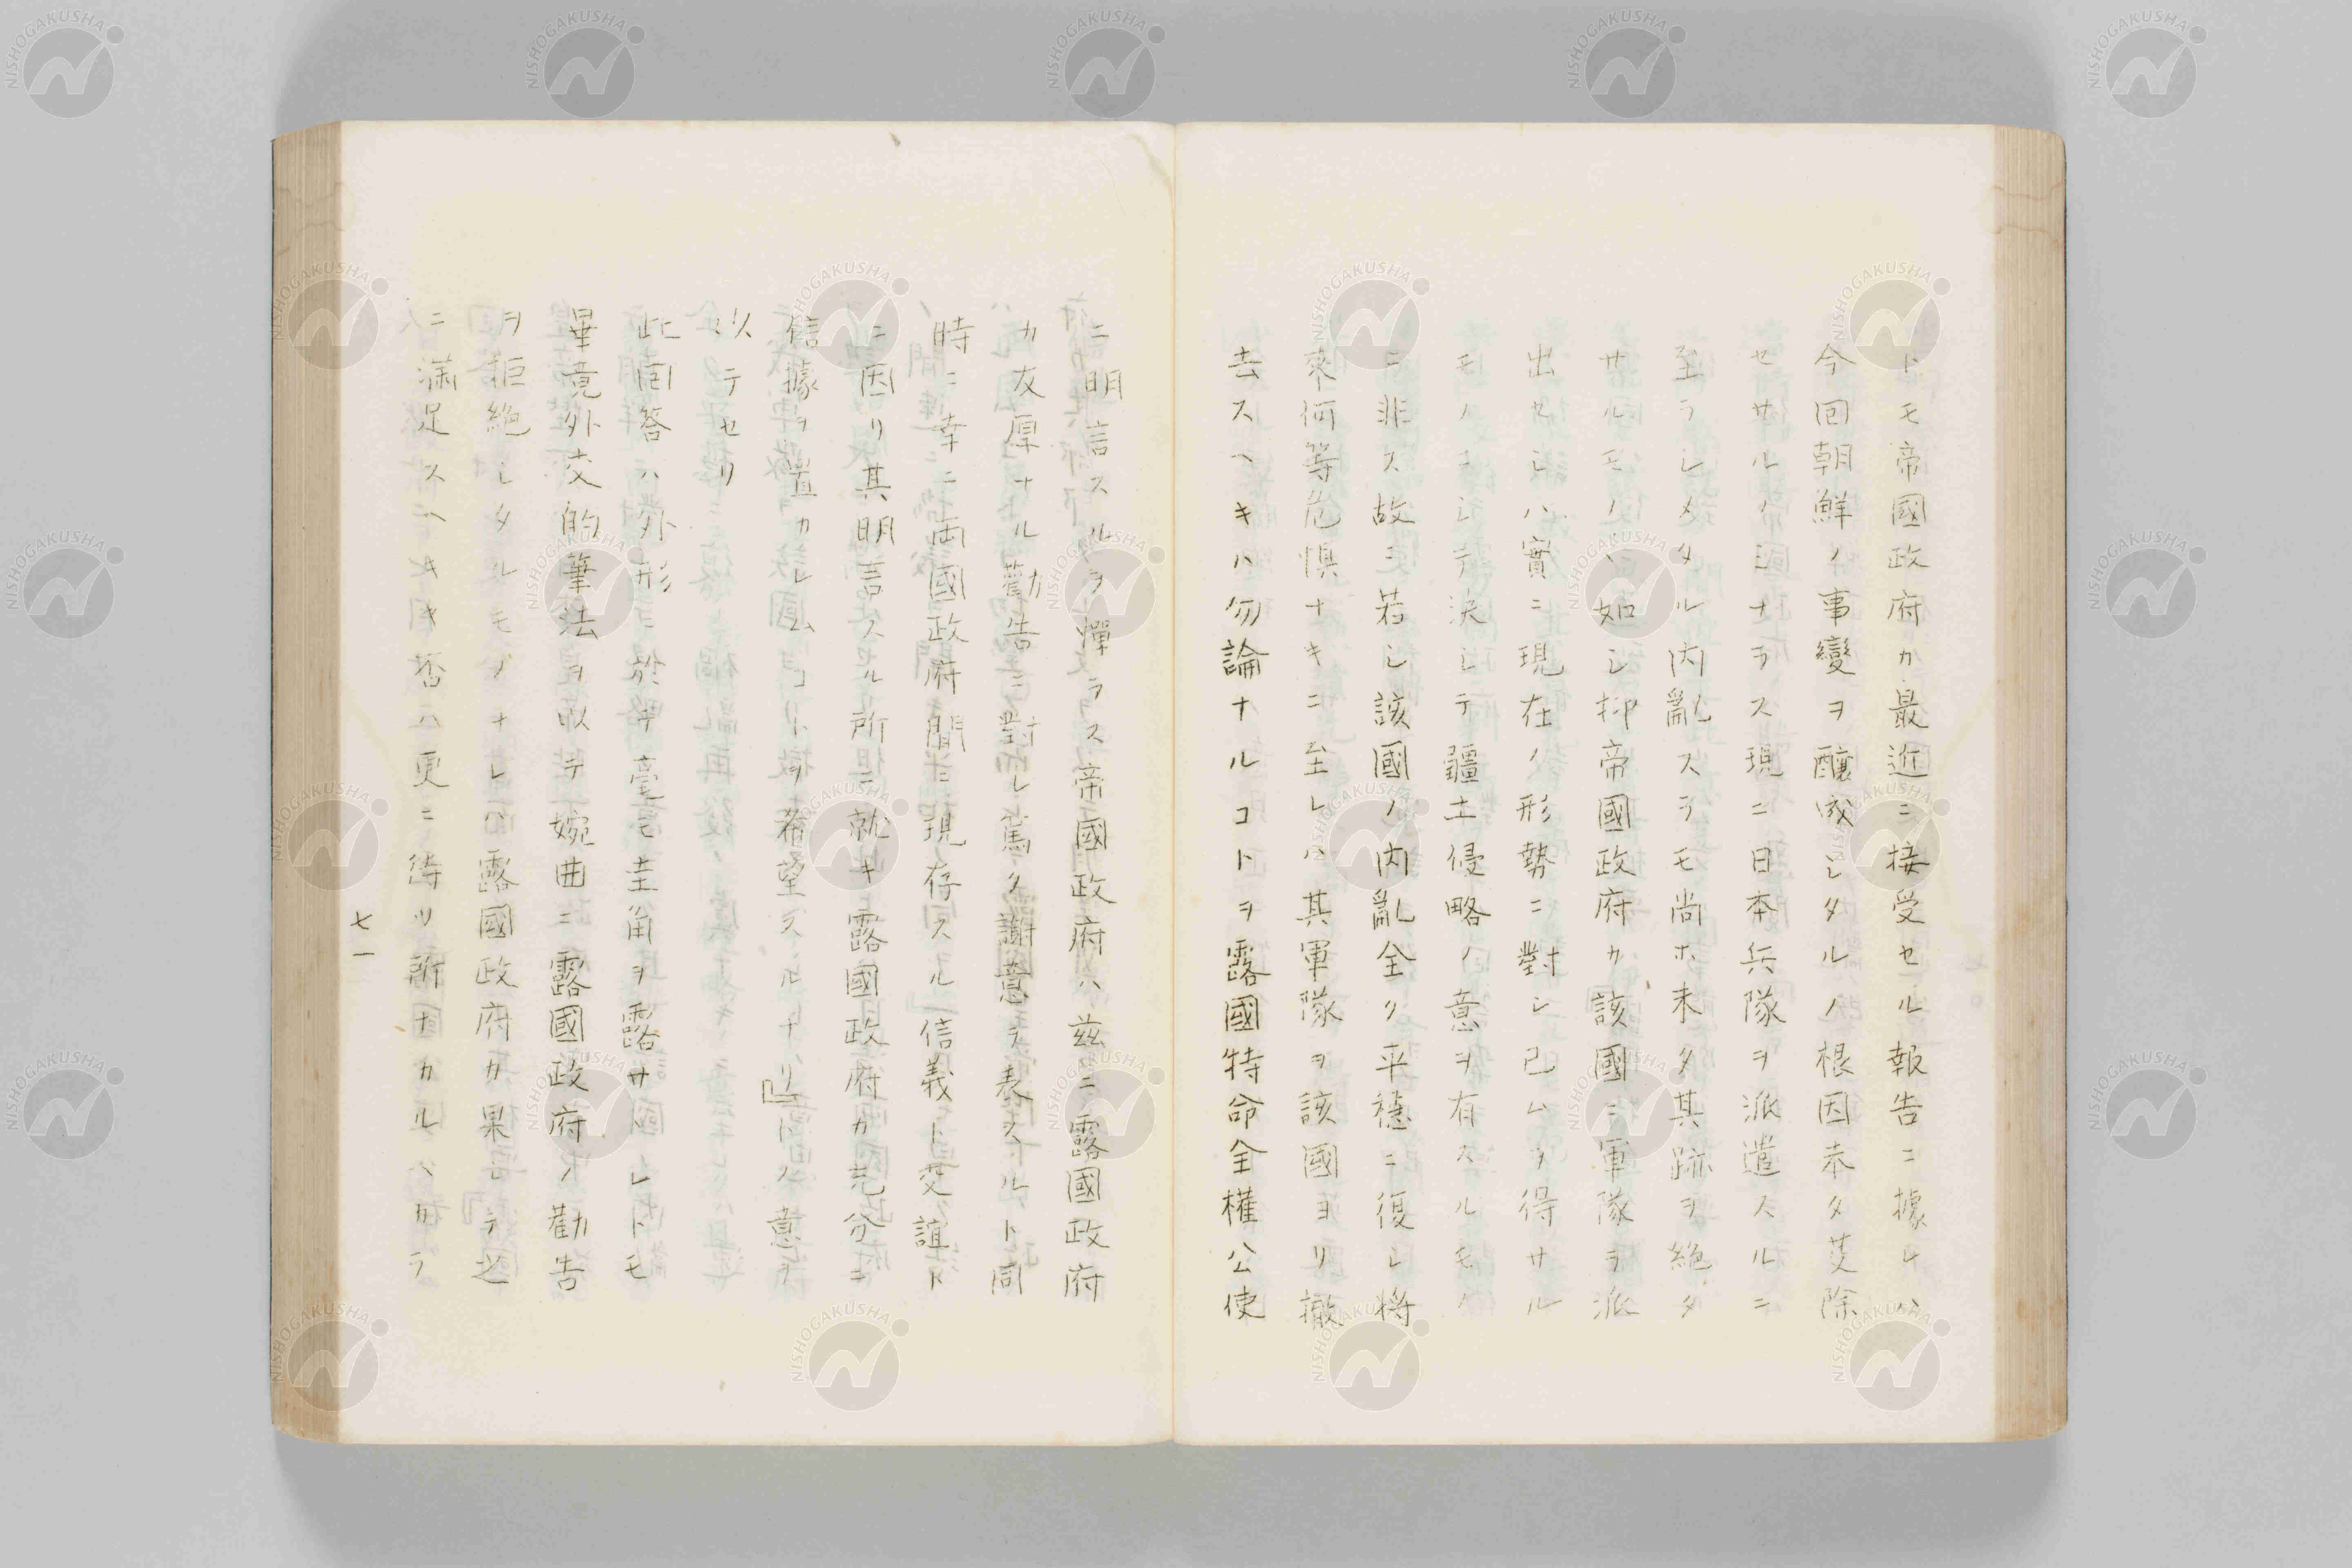 トモ帝國政府カ最近ニ接受セル報告ニ據レハ
今回朝鮮ノ事變ヲ釀成シタルノ根因未タ芟除
セサルノミナラス現ニ日本兵隊ヲ派遣スルニ
至ラシメタル内亂スラモ尚ホ未タ其跡ヲ絶タ
サルモノヽ如シ抑帝國政府カ該國ニ軍隊ヲ派
出セシハ實ニ現在ノ形勢ニ對シ已ムヲ得サル
モノニシテ決シテ疆土侵略ノ意ヲ有スルモノ
ニ非ス故ニ若シ該國ノ内亂全ク平穩ニ復シ將
來何等危惧ナキニ至レハ其軍隊ヲ該國ヨリ撤
去スヘキハ勿論ナルコトヲ露國特命全權公使
ニ明言スルヲ憚ラス帝國政府ハ茲ニ露國政府
カ友厚ナル勸告ニ對シ篤ク謝意ヲ表スルト同
時ニ幸ニ両國政府間ニ現存スル信義ト交誼ト
ニ因リ其明言スル所ニ就キ露國政府カ充分ニ
信據ヲ置カレムコトヲ希望スルナリ』トノ意ヲ
以テセリ
此回答ハ外形ニ於テ毫モ圭角ヲ露サヽレトモ
畢竟外交的筆法ヲ以テ婉曲ニ露國政府ノ勸告
ヲ拒絶シタルモノナレハ露國政府カ果シテ之
ニ滿足スヘキヤ否ハ更ニ待ツ所ナカルヘカラ
七一
NISHOGAKUSHA